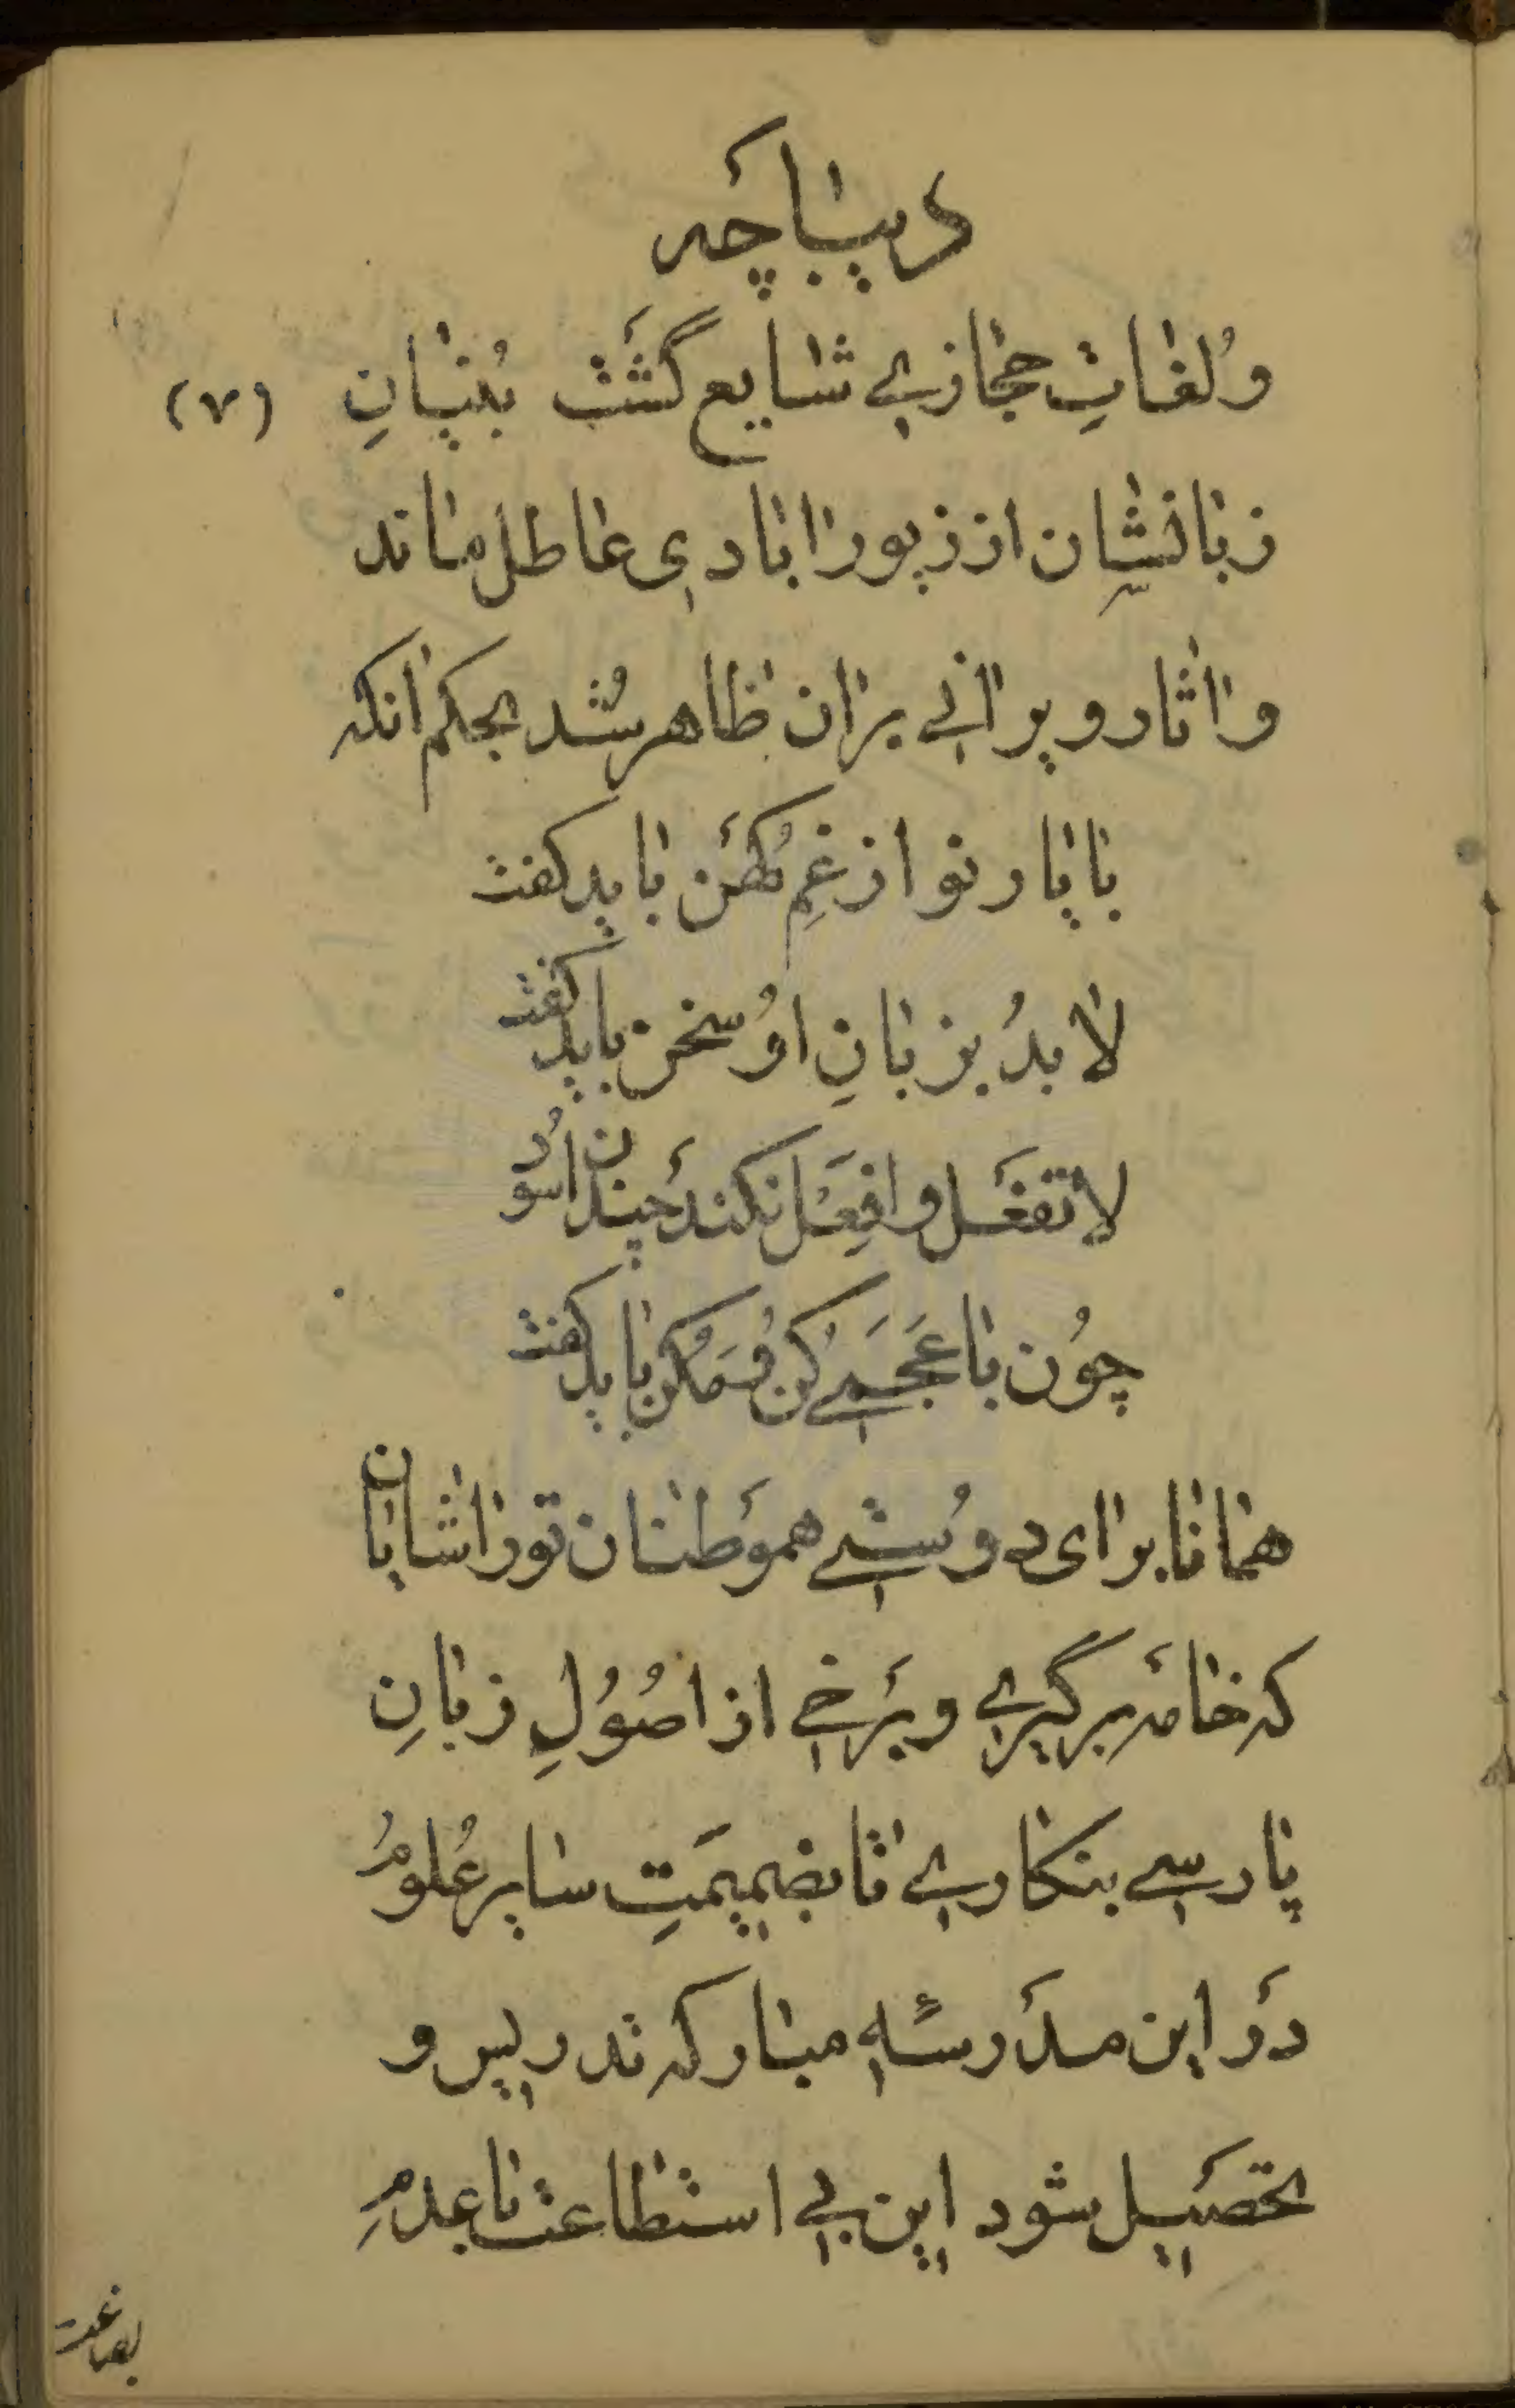 دیباچَه
وُلغاتِ حجازیِ شایع گشَت بُنیانِ (۷)
زبانشان از زیور ابادی عاطل ماند
و اثار ویرانی بران ظاهر شُد بحکم انکه
با یار نو از غمِ کُهَن باید کفت
لابدُ بزبانِ اوُ سخن باید کفت
لا تفعَل و افعَل نکندَ چندان سوُد
چوُن با عَجَمی کُن وُ مَکُن باید کفت
همانا برای دوُستیِ هموَطنان تورا شایان
که خامَه برگیری و بَرخی از اصُوُلِ زبانِ
پارسی بنکاری تا بضمیمَتِ سایر عُلوُمُ
دَر این مدَرسَهٔ مبارکه تدریس و
تحصَیل شود این بی استطاعت با عدمِ
بضاعت